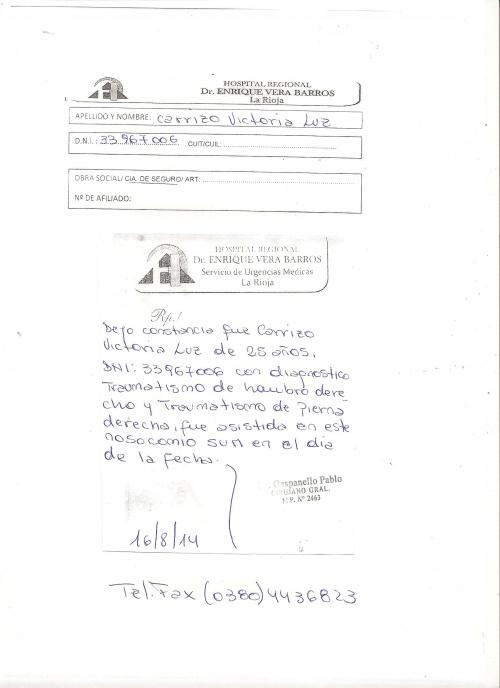 HOSPITAL REGIONAL
Dr. ENRIQUE VERA BARROS
La Rioja
APELLIDO Y NOMBRE: Carrizo Victoria Luz
D.N.I.: 33967006 CUIT/CUIL:
OBRA SOCIAL/ CIA. DE SEGURO/ ART:
Nº DE AFILIADO:
HOSPITAL REGIONAL
Dr. ENRIQUE VERA BARROS
Servicio de Urgencias Medicas
La Rioja
Rp./
Dejo constancia que Carrizo
Victoria Luz de 25 años,
DNI: 33967006 con diagnostico
Traumatismo de hombro dere
cho y Traumatismo de Pierna
derecha, fue asistida en este
nosocomio en el día
de la fecha.
Gaspanello Pablo
CIRUJANO GRAL.
M.P. Nº 2463
16/8/14
Tel. Fax (0380) 4436823